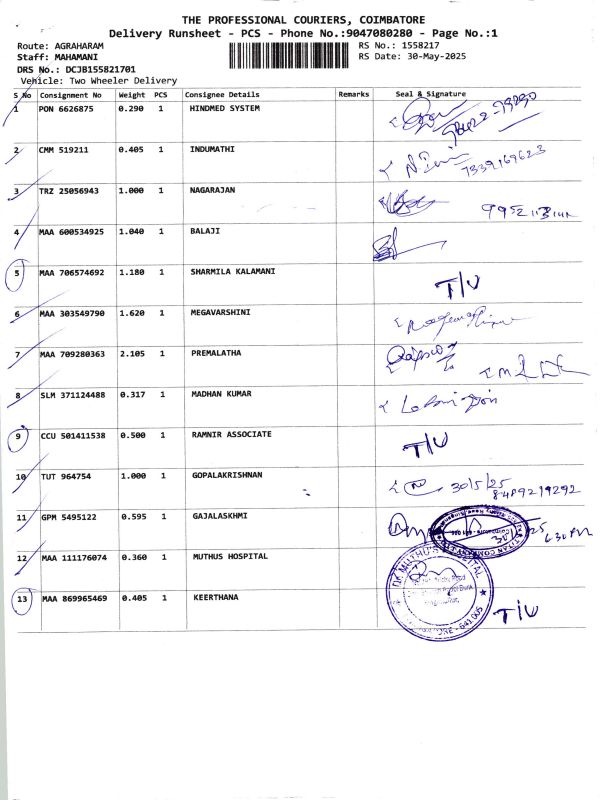 THE PROFESSIONAL COURIERS, COIMBATORE
Delivery Runsheet - PCS - Phone No.:9047080280 - Page No.:1
Route: AGRAHARAM
RS No.: 1558217
Staff: MAHAMANI
RS Date: 30-May-2025
DRS No.: DCJB155821701
Vehicle: Two Wheeler Delivery
S No Consignment No Weight PCS Consignee Details Remarks Seal & Signature
1 PON 6626875 0.290 1 HINDMED SYSTEM
2 CMM 519211 0.405 1 INDUMATHI 7339169623
3 TRZ 25056943 1.000 1 NAGARAJAN
4 MAA 600534925 1.040 1 BALAJI
5 MAA 706574692 1.180 1 SHARMILA KALAMANI T/U
6 MAA 303549790 1.620 1 MEGAVARSHINI
7 MAA 709280363 2.105 1 PREMALATHA
8 SLM 371124488 0.317 1 MADHAN KUMAR
9 CCU 501411538 0.500 1 RAMNIR ASSOCIATE T/U
10 TUT 964754 1.000 1 GOPALAKRISHNAN 30/5/25
8489219292
11 GPM 5495122 0.595 1 GAJALASKHMI
12 MAA 111176074 0.360 1 MUTHUS HOSPITAL
13 MAA 869965469 0.405 1 KEERTHANA T/U